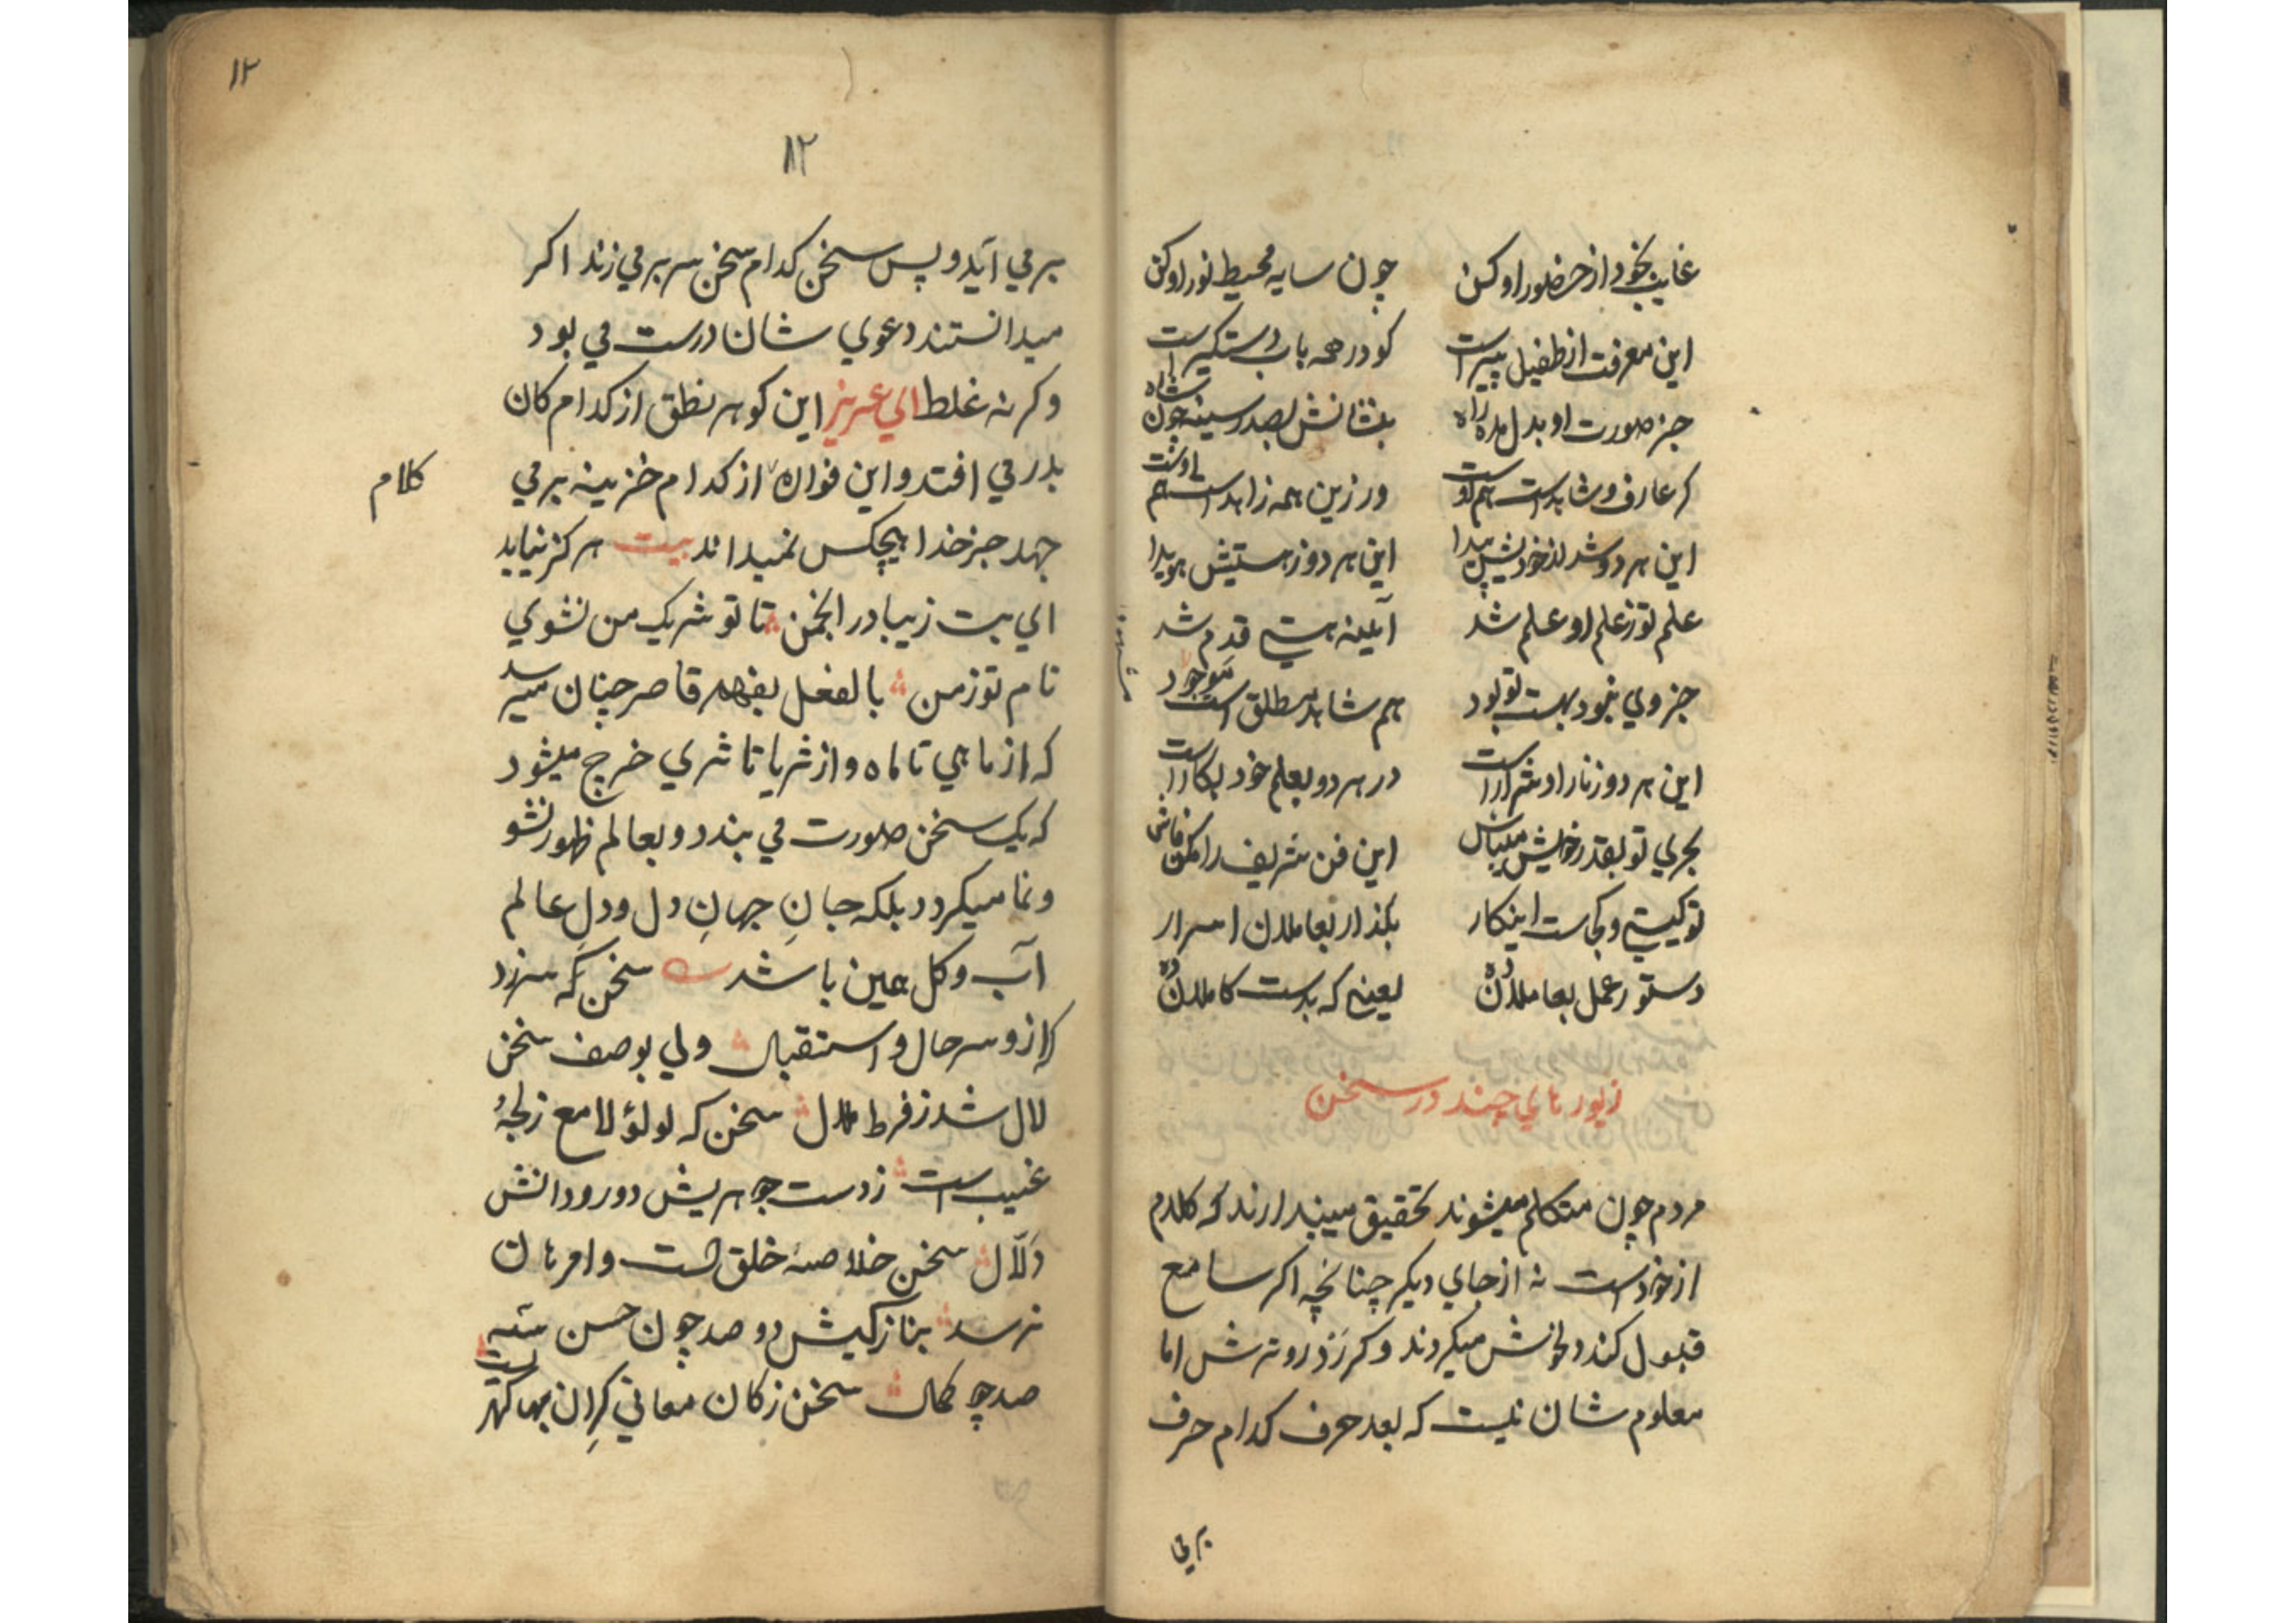 غایب بخود از حضور او کن چون سایه محیط نور او کن
این معرفت از طفیل پیر است کو در همه باب دستگیر است
جز صورت او بدل مده راه بنشانش بصدر سینه چون شاه
کر عارف و شاهدست هم اوست ور زین همه زاهد است هم اوست
این هر دو شد از خودیش پیدا این هر دو ز هستیش هویدا
علم تو ز علم او علم شد آیینه هستی قدم شد
جز وی نبود بهست تو بود هم شاهد مطلق است موجود
این هر دو ز نار او شرار است در هر دو بعلم خود بکار است
بحری تو بقدر خویش میباش این فن شریف را مکن فاش
تو کیستی و کجاست اینکار بکذار بعاملان اسرار
دستور عمل بعاملان ده یعنی که بدست کاملان ده
زیور های چند در سخن
مردم چون متکلم میشوند تحقیق میپندارند که کلام
از خود است نه از جای دیکر چنانچه اکر سامع
قبول کند دلخوش میکردند و کر رد رو ترش اما
معلوم شان نیست که بعد حرف کدام حرف
برمی
۱۲
۱۲
برمی آید و پس سخن کدام سخن سر برمی زند اکر
میدانستند دعوی شان درست می بود
وکرنه غلط ای عزیز این کوهر نطق از کدام کان
بدر می افتد و این فواره از کدام خزینه برمی
کلام
جهد جز خدا هیچکس نمیداند بیت هرکز نیاید
ای بت زیبا در انجمن تا تو شریک من نشوی
نام تو ز من بالفعل بفهم قاصر چنان میرسد
که از ماهی تا ماه و از ثریا تا ثری خرج میشود
که یک سخن صورت می بندد و بعالم ظهور نشو
و نما میکردد بلکه جانِ جهانِ دل و دلِ عالم
آب و کل همین باشد سخن که سرزد
کز و سر حال و استقبال ولی بوصف سخن
لال شد ز فرط ملال سخن که لولؤ لامع ز لجهٔ
غیب است ز دست جوهریش دور و دانش
دَلّال سخن خلاصهٔ خلق است و امر بآن
نرسد بناز کیش دو صد چون حسن
صد چو کمال سخن ز کان معانی کِران بها کهریست